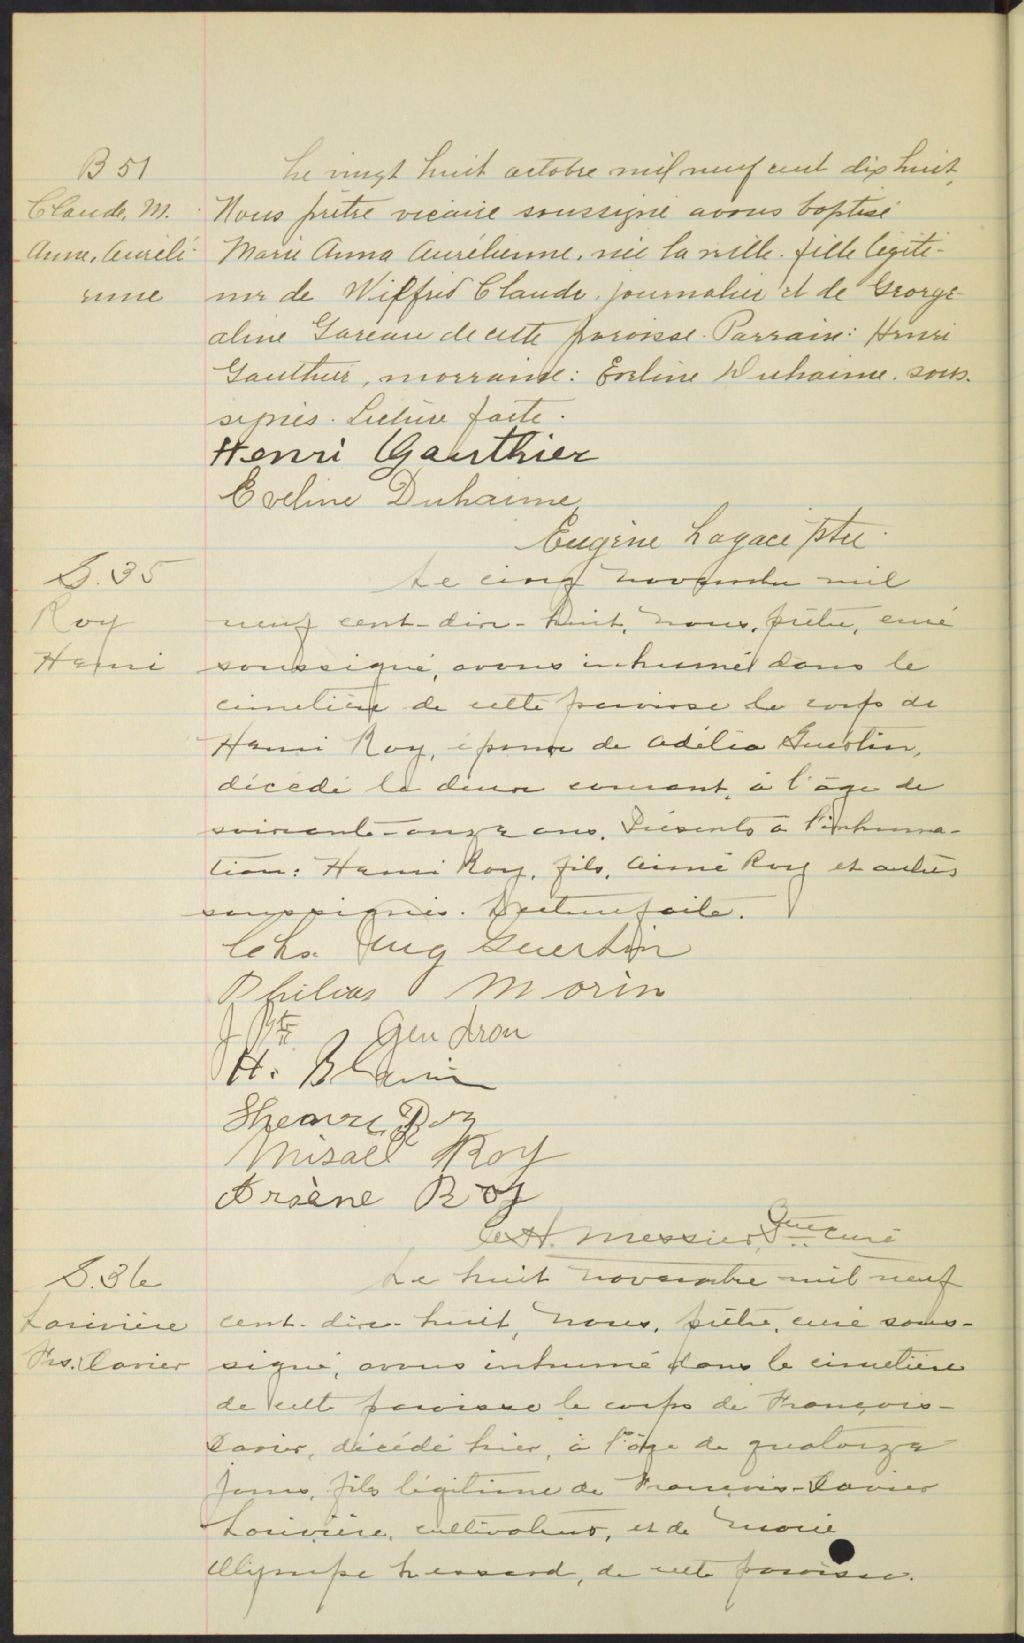 B 51
Claude, M.
Anna, Auréli-
enne
Le vingt huit octobre mil neuf cent dix huit,
Nous prêtre vicaire soussigné avons baptisé
Marie Anna Aurélienne, née la veille, fille légiti-
me de Wilfrid Claude, journalier et de George
aline Gareau de cette paroisse. Parrain: Henri
Gauthier, marraine: Eveline Duhaime. sous-
signés. Lecture faite.
Henri Gauthier
Eveline Duhaime
Eugène Lagacé ptre
S. 35
Roy
Henri
Le cinq novembre mil
neuf cent-dix-huit, nous, prêtre, curé
soussigné, avons inhumé dans le
cimetière de cette paroisse le corps de
Henri Roy, époux de Adélia Guertin,
décédé le deux courant, à l'âge de
soixante-onze ans. Présents à l'inhuma-
tion: Henri Roy, fils, Aimé Roy et autres
soussignés. Lecture faite.
Chs. Aug Guertin
Philias Morin
J Bte Gendron
H. Blain
Roy
Misael Roy
Arsène Roy
C. H. Messier, Ptre curé
S. 36
Larivière
Frs. Xavier
Le huit novembre mil neuf
cent-dix-huit, nous, prêtre, curé sous-
signé, avons inhumé dans le cimetière
de cette paroisse le corps de François-
Xavier, décédé hier, à l'âge de quatorze
jours, fils légitime de François-Xavier
Larivière, cultivateur, et de Marie
Olympe Lessard, de cette paroisse.